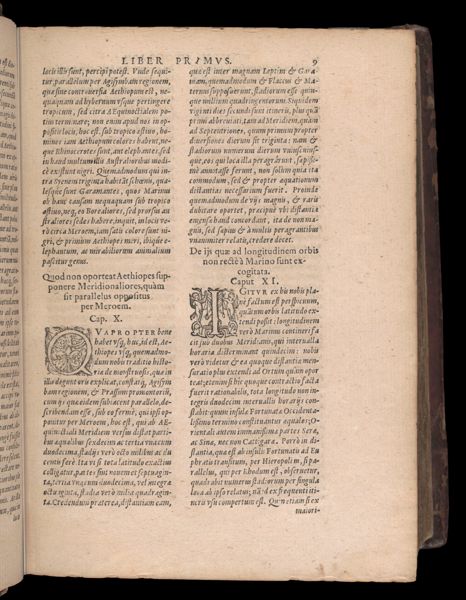 LIBER PRIMVS. 9
locis illis sunt, percipi potest. Vnde sequi-
tur, parallelum per Agisymbam regionem,
quæ sine controuersia Aethiopum est, ne-
quaquam ad hybernum vsque pertingere
tropicum, sed citra AEquinoctialem po-
tius terminare; non enim apud nos in op-
positis locis, hoc est, sub tropico æstiuo, ho-
mines iam Aethiopum colores habent, ne-
que Rhinocerotes sunt, aut elephantes; sed
in haud multum illis Australioribus modi-
cè ex nigri. Quemadmodum qui in-
tra Syenem triginta habitãt schœnis, qua-
les sunt Garamantes, quos Marinus
ob hanc causam nequaquam sub tropico
æstiuo, neq, eo Borealiores, sed prorsus au-
straliores sedes habere, inquit, in locis ve-
rò circa Meroem, iam satis colore sunt ni-
gri, & primùm Aethiopes meri, ibique e-
lephantum, ac mirabilium animalium
pascitur genus.
Quod non oporteat Aethiopes sup-
ponere Meridionaliores, quàm
sit parallelus oppositus
per Meroem.
Cap. X.
QVAPROPTER bene
habet vsq, huc, id est, Ae-
thiopes vsq, quemadmo-
dum nobis traditio histo-
riæ demonstrauit, quæ in
illa degentes explicat, constat; Agisym
bam regionem, & Prassum promontoriũ,
cum ijs quæ eidem subiacent parallelo, de-
scribendam esse, sub eo fermè, qui ipsi op-
ponitur per Meroem, hoc est, qui ab AE-
quinoctiali Meridiem versus distat parti-
bus æqualibus sexdecim ac tertia vnacum
duodecima, stadijs verò octo millibus ac du
centis ferè. Ita vt sit tota latitudo exactius
colligatur, partes sint nouem et septuagin-
ta, tertia vnacum duodecima, vel integræ
octuaginta, stadia verò millia quadragin-
ta. Credendum præterea, distantiam eam,
quæ est inter magnam Leptim & Gara-
mam, quemadmodum & Flaccus & Ma-
ternus supposuerunt, stadiorum esse quin-
que millium quadringentorum. Siquidem
viginti dies secundi sunt itineris, plus quã
primi abbreuiati, tum ad Meridiem, quàm
ad Septentriones, quum primum propter
diuersiones dierum sit triginta: nam &
stadiorum numerum dierum vniuscuius-
que, eos qui loca illa peragrârunt, sæpissi-
mè annotasse ferunt, non solùm quia ita
commodum, sed & propter aquationum
distantias necessarium fuerit. Proinde
quemadmodum de vijs magnis, & rarò
dubitare oportet, præcipuè vbi distantiæ
eiusmodi haud concordant, ita de non ma-
gnis, sed sæpius & à multis peragrantibus
vnanimiter relatis, credere decet.
De ijs quæ ad longitudinem orbis
non rectè à Marino sunt ex-
cogitata.
Caput XI.
IGITVR ex his nobis pla-
nè factum est perspicuum,
quãtum orbis latitudo ex-
tendi possit: longitudinem
verò Marinus contineri fa
cit sub duobus Meridianis, qui interualla
horaria disterminant quindecim: nobis
verò videtur & ea quoque distantia men-
suratio plus extendi ad Ortum quàm opor
teat; etenim si hic quoque contractio facta
fuerit rationabilis, tota longitudo non in-
tegris duodecim interuallis horarijs con-
stabit quum insulæ Fortunatæ Occidenta-
lissimo termino constituantur æquales; O-
rientali autem immanissima partes Sera,
ac Sinæ, nec non Cattigara. Porrò in di-
stantia, quæ est ab insulis Fortunatis ad Eu
phratis transitum, per Hierapolim, si pa-
rallelus, qui per Rhodum est, obseruetur,
quadrabit numerus stadiorum per singula
loca ab ipso relatus; nã id ex frequenti iti-
neris vsu compertum est. Quin etiam si ex
maiori-